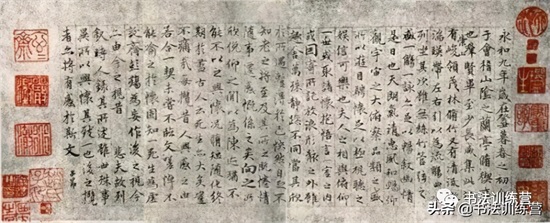 永和九年歲在癸丑暮春之初會
于會稽山陰之蘭亭脩稧事
也羣賢畢至少長咸集此地
有峻領茂林脩竹又有清流激
湍暎帶左右引以為流觴曲水
列坐其次雖無絲竹管弦之
盛一觴一詠亦足以暢敘幽情
是日也天朗氣清惠風和暢仰
觀宇宙之大俯察品類之盛
所以遊目騁懷足以極視聽之
娛信可樂也夫人之相與俯仰
一世或取諸懷抱悟言一室之內
或因寄所託放浪形骸之外雖
趣舍萬殊靜躁不同當其欣
於所遇暫得於己怏然自足不
知老之將至及其所之既惓情
隨事遷感慨係之矣向之所
欣俛仰之閒以為陳迹猶不
能不以之興懷況脩短隨化終
期於盡古人云死生亦大矣豈
不痛哉每攬昔人興感之由
若合一契未嘗不臨文嗟悼不
能喻之於懷固知一死生為虛
誕齊彭殤為妄作後之視今
亦由今之視昔 悲夫故列
敘時人錄其所述雖世殊事
異所以興懷其致一也後之攬
者亦將有感於斯文
子昂
书法训练营
头条@书法训练营